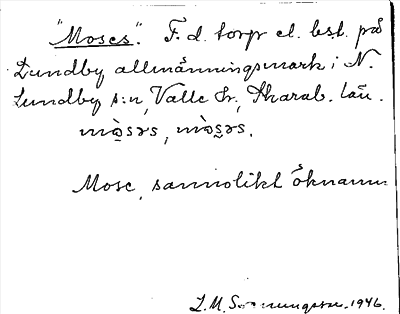 "Moses". F. d. torp el. bst. på
Lundby allmänningsmark i N.
Lundby s:n, Valle hr, Skarab. län.
mòsəs, mòsəs.
Mose, sannolikt öknamn
I. M. 1946.